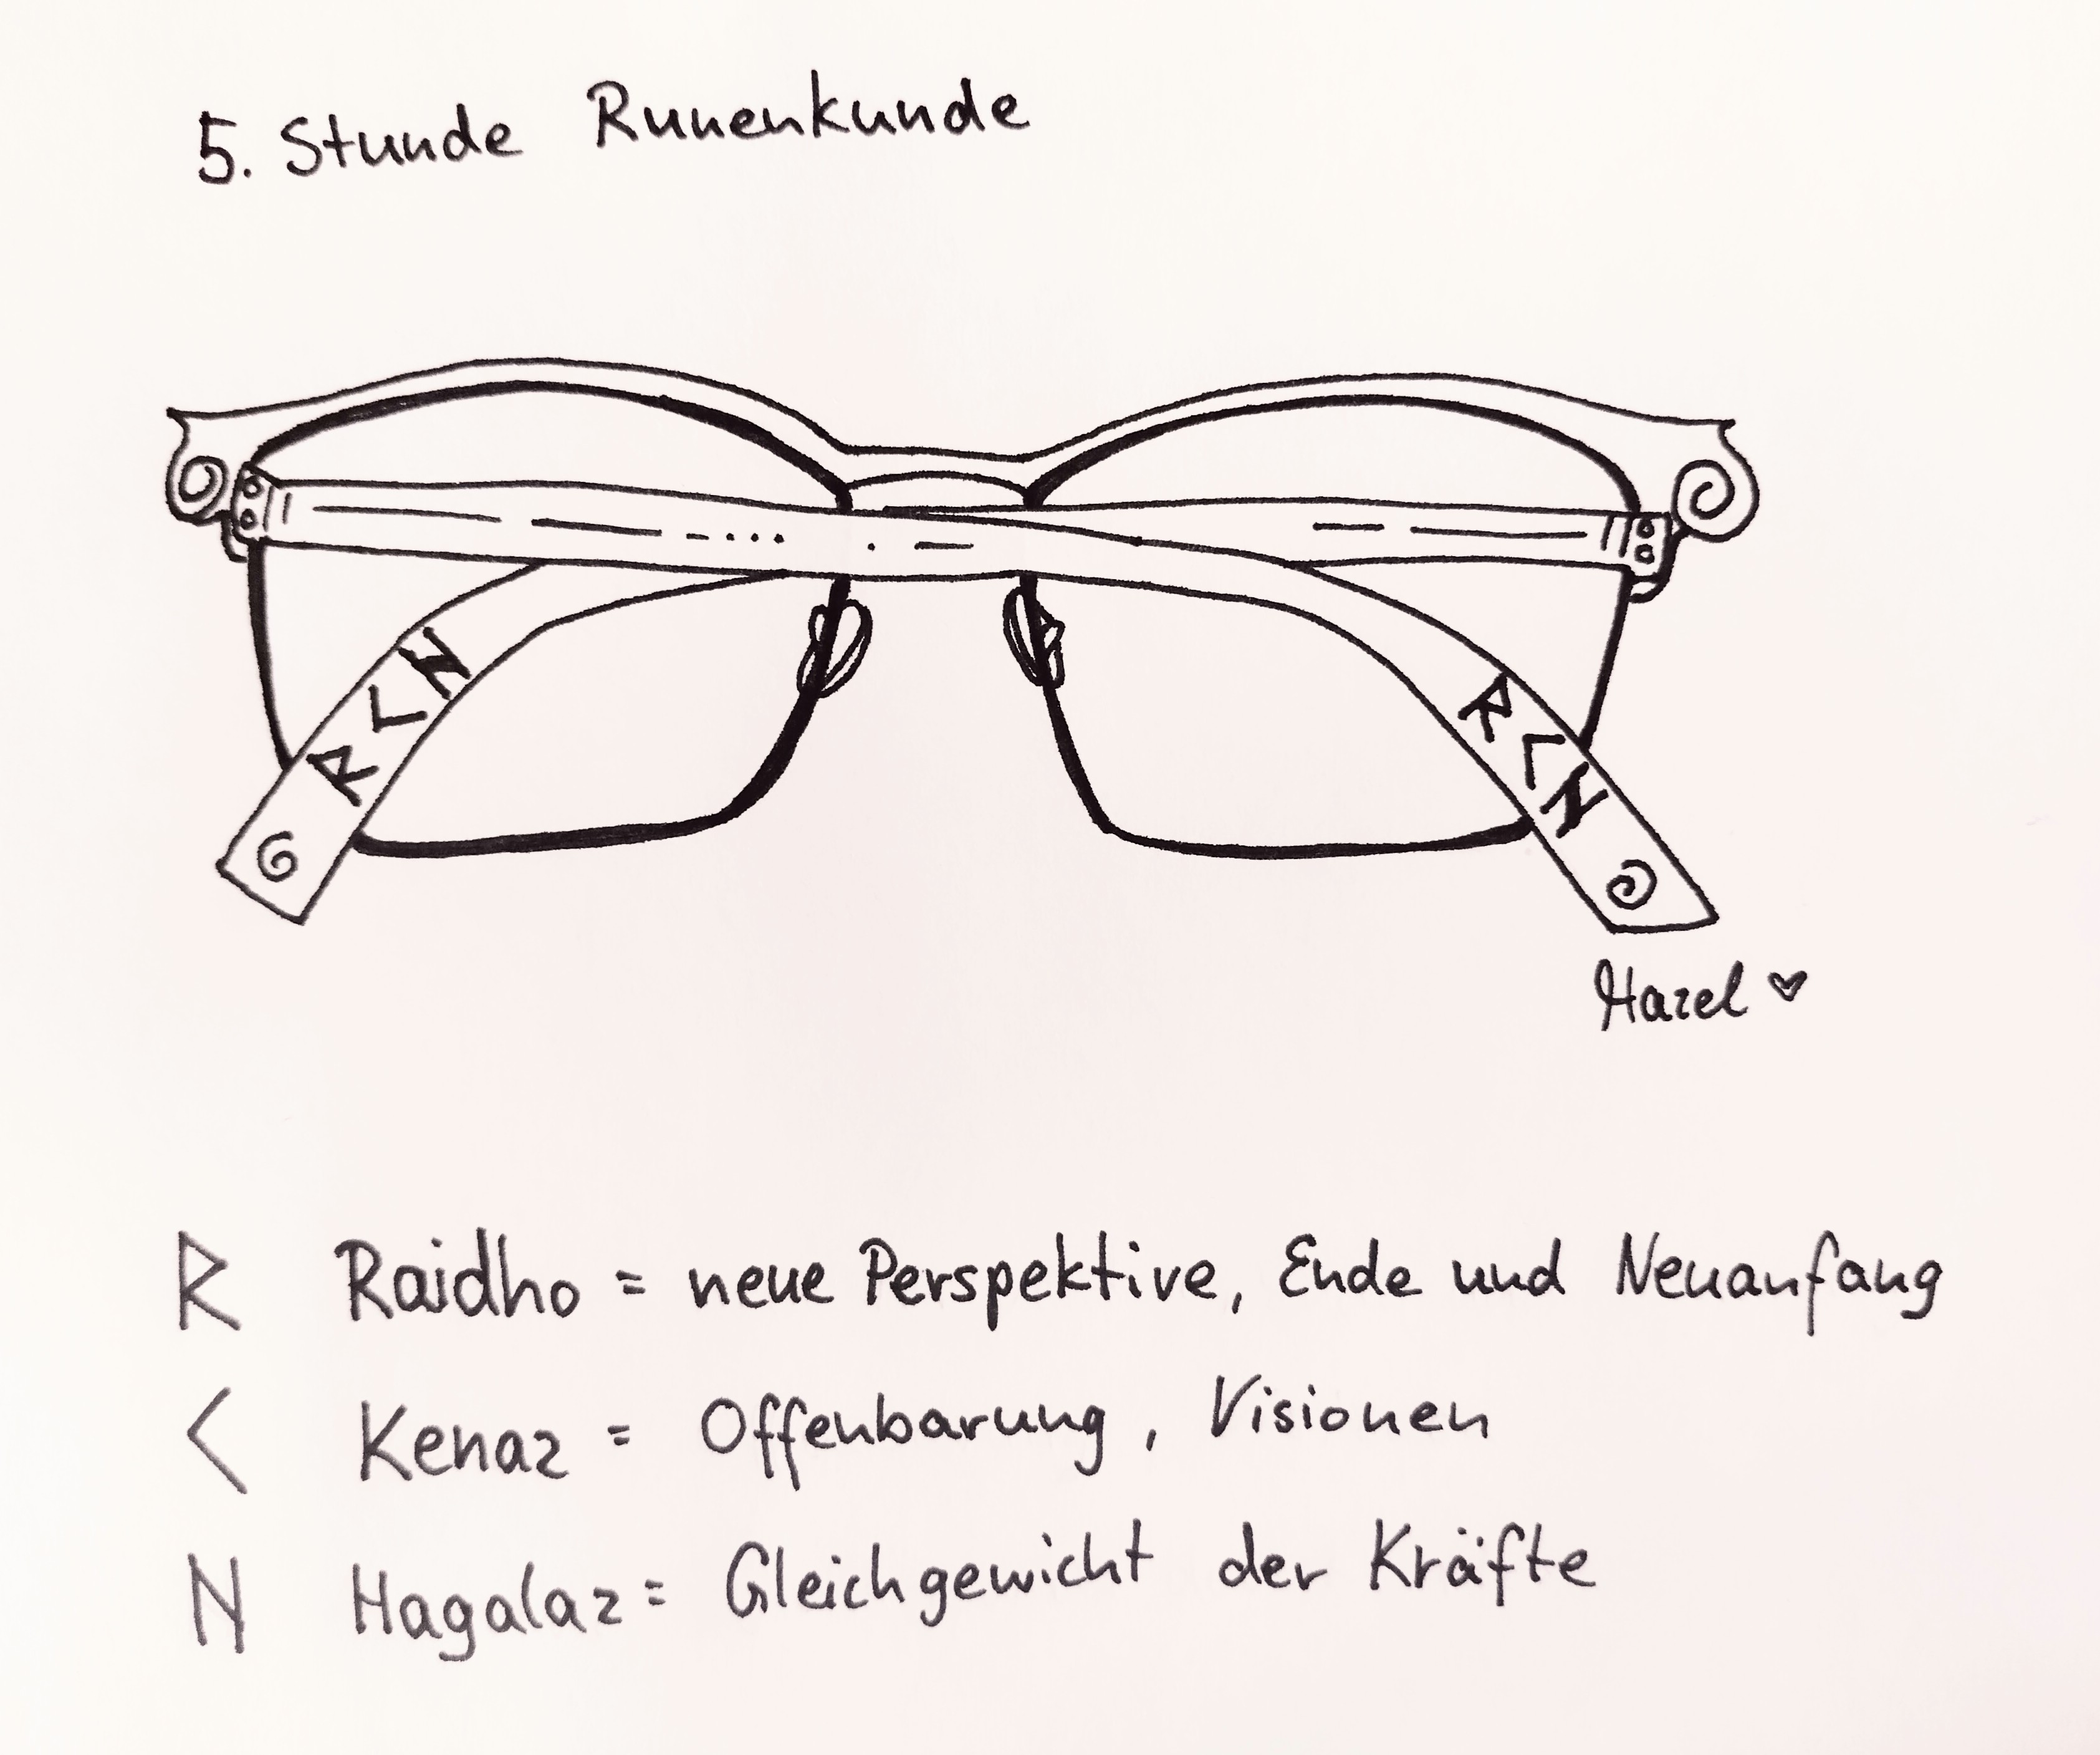 5. Stunde Runenkunde
ᚱ ᚲ ᚺ
ᚱ ᚲ ᚺ
Hazel ♥
ᚱ Raidho = neue Perspektive, Ende und Neuanfang
ᚲ Kenaz = Offenbarung, Visionen
ᚺ Hagalaz = Gleichgewicht der Kräfte